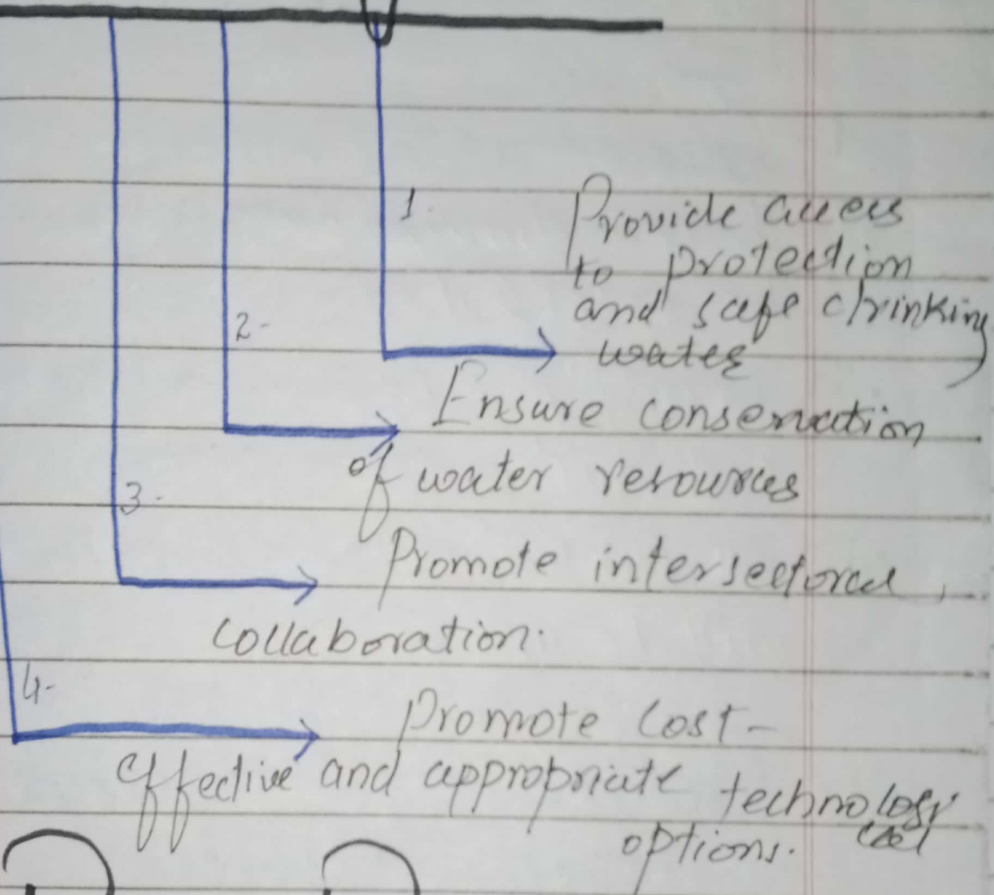 1.
Provide access
to protection
and safe drinking
water
2-
Ensure conservation
of water resources
3-
Promote intersectoral
collaboration.
4-
Promote cost-
effective and appropriate technology
options.